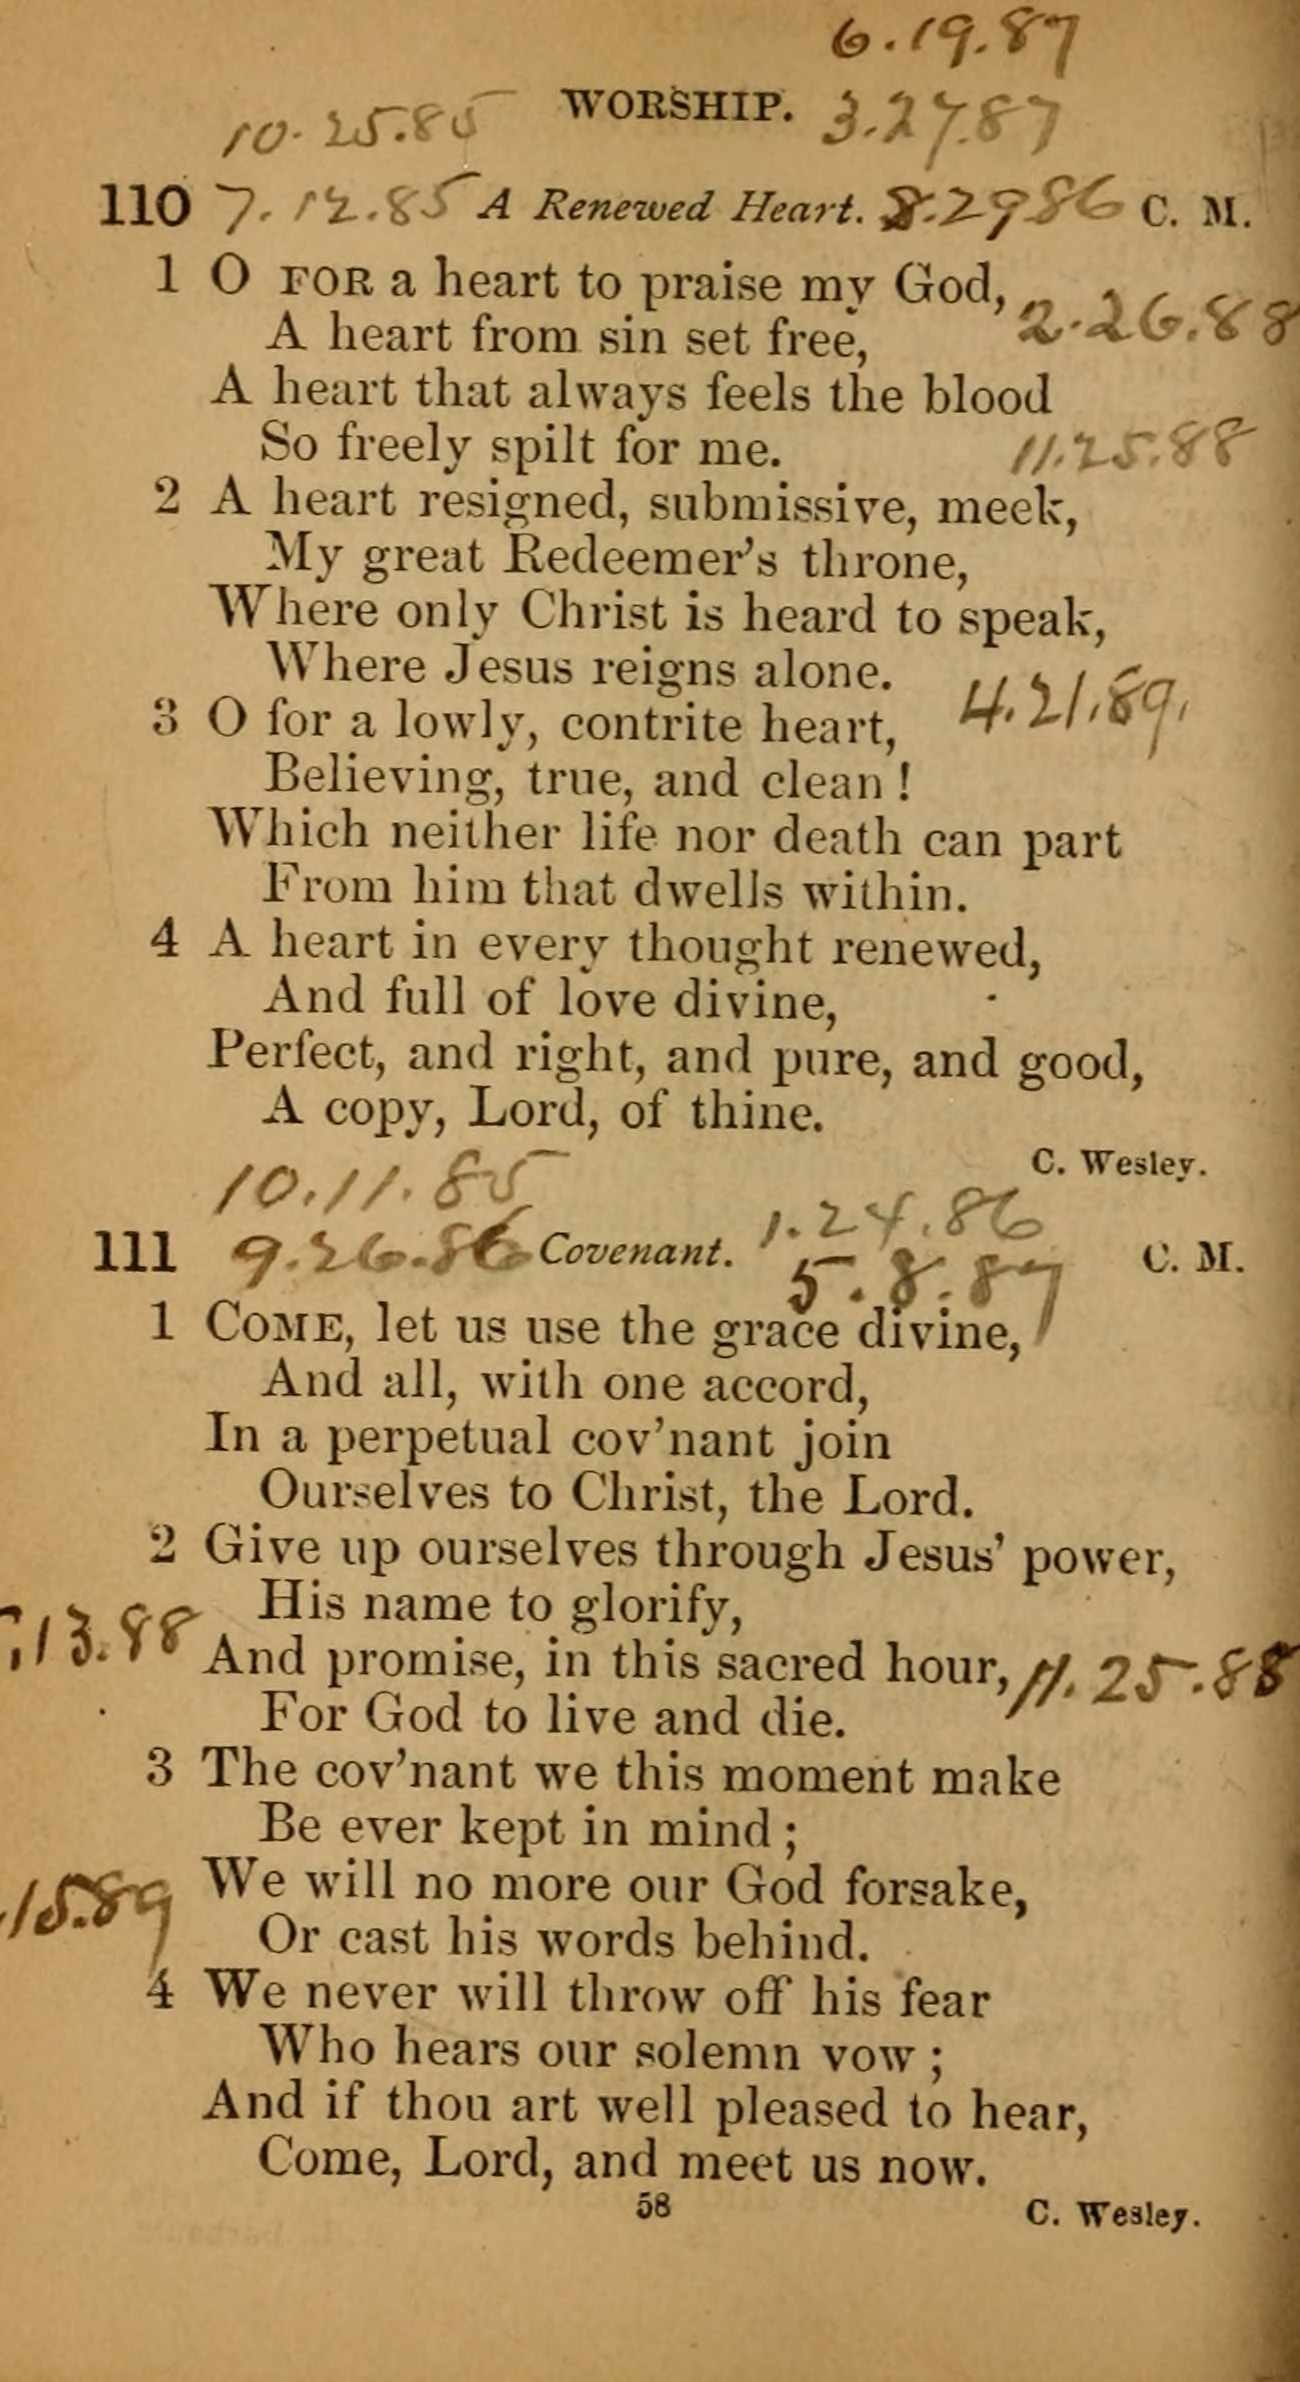 6.19.87
WORSHIP. 3.27.87
10.25.85
110 7.12.85 A Renewed Heart. 8.29 86 C. M.
1 O FOR a heart to praise my God,
A heart from sin set free, 2.26.88
A heart that always feels the blood
So freely spilt for me. 11.25.88
2 A heart resigned, submissive, meek,
My great Redeemer's throne,
Where only Christ is heard to speak,
Where Jesus reigns alone.
3 O for a lowly, contrite heart, 4.21.89.
Believing, true, and clean!
Which neither life nor death can part
From him that dwells within.
4 A heart in every thought renewed,
And full of love divine,
Perfect, and right, and pure, and good,
A copy, Lord, of thine.
C. Wesley.
10.11.85
1.24.86
111 9.26.86 Covenant. C. M.
5.8.87
1 COME, let us use the grace divine,
And all, with one accord,
In a perpetual cov'nant join
Ourselves to Christ, the Lord.
2 Give up ourselves through Jesus' power,
His name to glorify,
.13.88
And promise, in this sacred hour, 11.25.88
For God to live and die.
3 The cov'nant we this moment make
Be ever kept in mind;
We will no more our God forsake,
.15.89
Or cast his words behind.
4 We never will throw off his fear
Who hears our solemn vow;
And if thou art well pleased to hear,
Come, Lord, and meet us now.
58
C. Wesley.